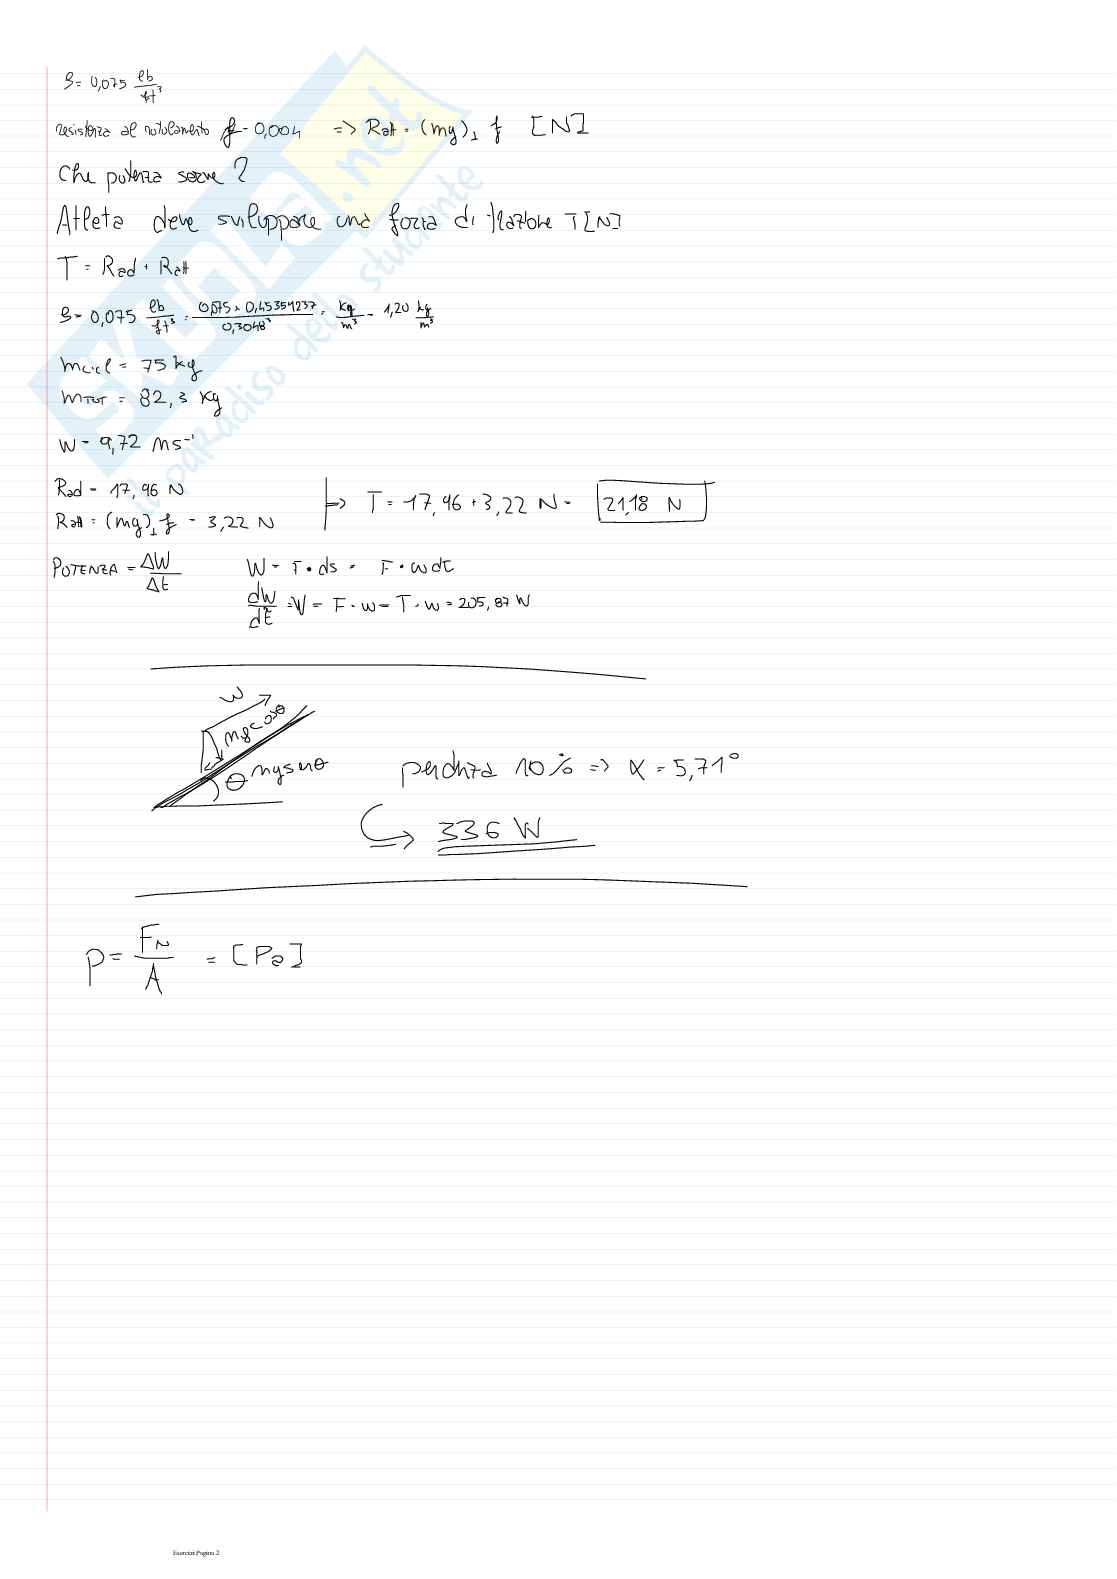 ρ = 0,075 lb/ft³
resistenza al rotolamento f = 0,004 => Ratt = (mg)⊥ f [N]
Che potenza serve?
Atleta deve sviluppare una forza di trazione T[N]
T = Rad + Ratt
ρ = 0,075 lb/ft³ = 0,075 × 0,45359237 / 0,3048³ = kg/m³ = 1,20 kg/m³
mcicl = 75 kg
mTOT = 82,3 kg
w = 9,72 ms⁻¹
Rad = 17,96 N
Ratt = (mg)⊥ f = 3,22 N
T = 17,96 + 3,22 N = 21,18 N
POTENZA = ΔW/Δt W = F • ds = F • w dt
dW/dt = Ẇ = F · w = T · w = 205,87 W
w
mg cosθ
θ mg senθ
pendenza 10% => α = 5,71°
336 W
p = FN/A = [Pa]
SKUOLA.net
il paradiso dello studente
Esercizi Pagina 2